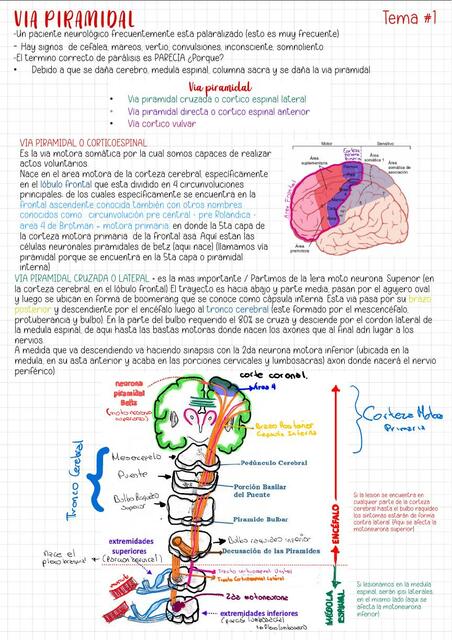 VIA PIRAMIDAL
Tema #1
-Un paciente neurológico frecuentemente esta palaralizado (esto es muy frecuente)
- Hay signos de cefalea, mareos, vertio, convulsiones, inconsciente, somnoliento
-El termino correcto de parálisis es PARECIA ¿Porque?
• Debido a que se daña cerebro, medula espinal, columna sacra y se daña la via piramidal
Via piramidal
• Via piramidal cruzada o cortico espinal lateral
• Via piramidal directa o cortico espinal anterior
• Via cortico vulvar
VIA PIRAMIDAL O CORTICOESPINAL
Es la via motora somática por la cual somos capaces de realizar
actos voluntarios
Nace en el area motora de la corteza cerebral, especificamente
en el lóbulo frontal que esta dividido en 4 circunvoluciones
principales, de los cuales especificamente se encuentra en la
frontal ascendente conocida también con otros nombres
conocidos como circunvolución pre central - pre Rolandica -
area 4 de Brotman - motora primaria, en donde la 5ta capa de
la corteza motora primaria de la frontal asa. Aqui estan las
células neuronales piramidales de betz (aqui nace) (llamamos via
piramidal porque se encuentra en la 5ta capa o piramidal
interna)
Motor
Sensitivo
Área suplementaria
Área somática 1
Área somática de asociación
Área premotora
VIA PIRAMIDAL CRUZADA O LATERAL - es la mas importante / Partimos de la 1era moto neurona Superior (en
la corteza cerebral, en el lóbulo frontal) El trayecto es hacia abajo y parte media, pasan por el agujero oval
y luego se ubican en forma de boomerang que se conoce como cápsula interna. Esta via pasa por su brazo
posterior y descendiente por el encéfalo luego al tronco cerebral (este formado por el mescencéfalo,
protuberancia y bulbo). En la parte del bulbo requerido el 80% se cruza y desciende por el cordon lateral de
la medula espinal, de aqui hasta las bastas motoras donde nacen los axones que al final adn lugar a los
nervios.
A medida que va descendiendo va haciendo sinapsis con la 2da neurona motora inferior (ubicada en la
medula, en su asta anterior y acaba en las porciones cervicales y lumbosacras) axon donde nacerá el nervio
periférico)
corte coronal.
neurona
piramidal
Betz
(motoneurona
superiores)
Area 4
Brazo Posterior
Capsula Interna
Corteza Motora
Primaria
Tronco Cerebral
Mesencefalo
Pedúnculo Cerebral
Puente
Porción Basilar
del Puente
Bulbo Raquideo
Superior
Piramide Bulbar
Si la lesion se encuentra en
cualquier parte de la corteza
cerebral hasta el bulbo raquideo
los sintomas estarán de forma
contra lateral (Aqui se afecta la
motoneurona superior)
ENCÉFALO
extremidades
superiores
Bulbo raquideo inferior
Decusación de las Piramides
Nace el
plexo braquial
(Porcion cervical)
Tracto Corticoespinal Lateral
2da motoneurona
extremidades inferiores
MÉDULA
ESPINAL
Si lesionamos en la medula
espinal serán ipsi laterales,
en el mismo lado (aqui se
afecta la motoneurona
inferior)